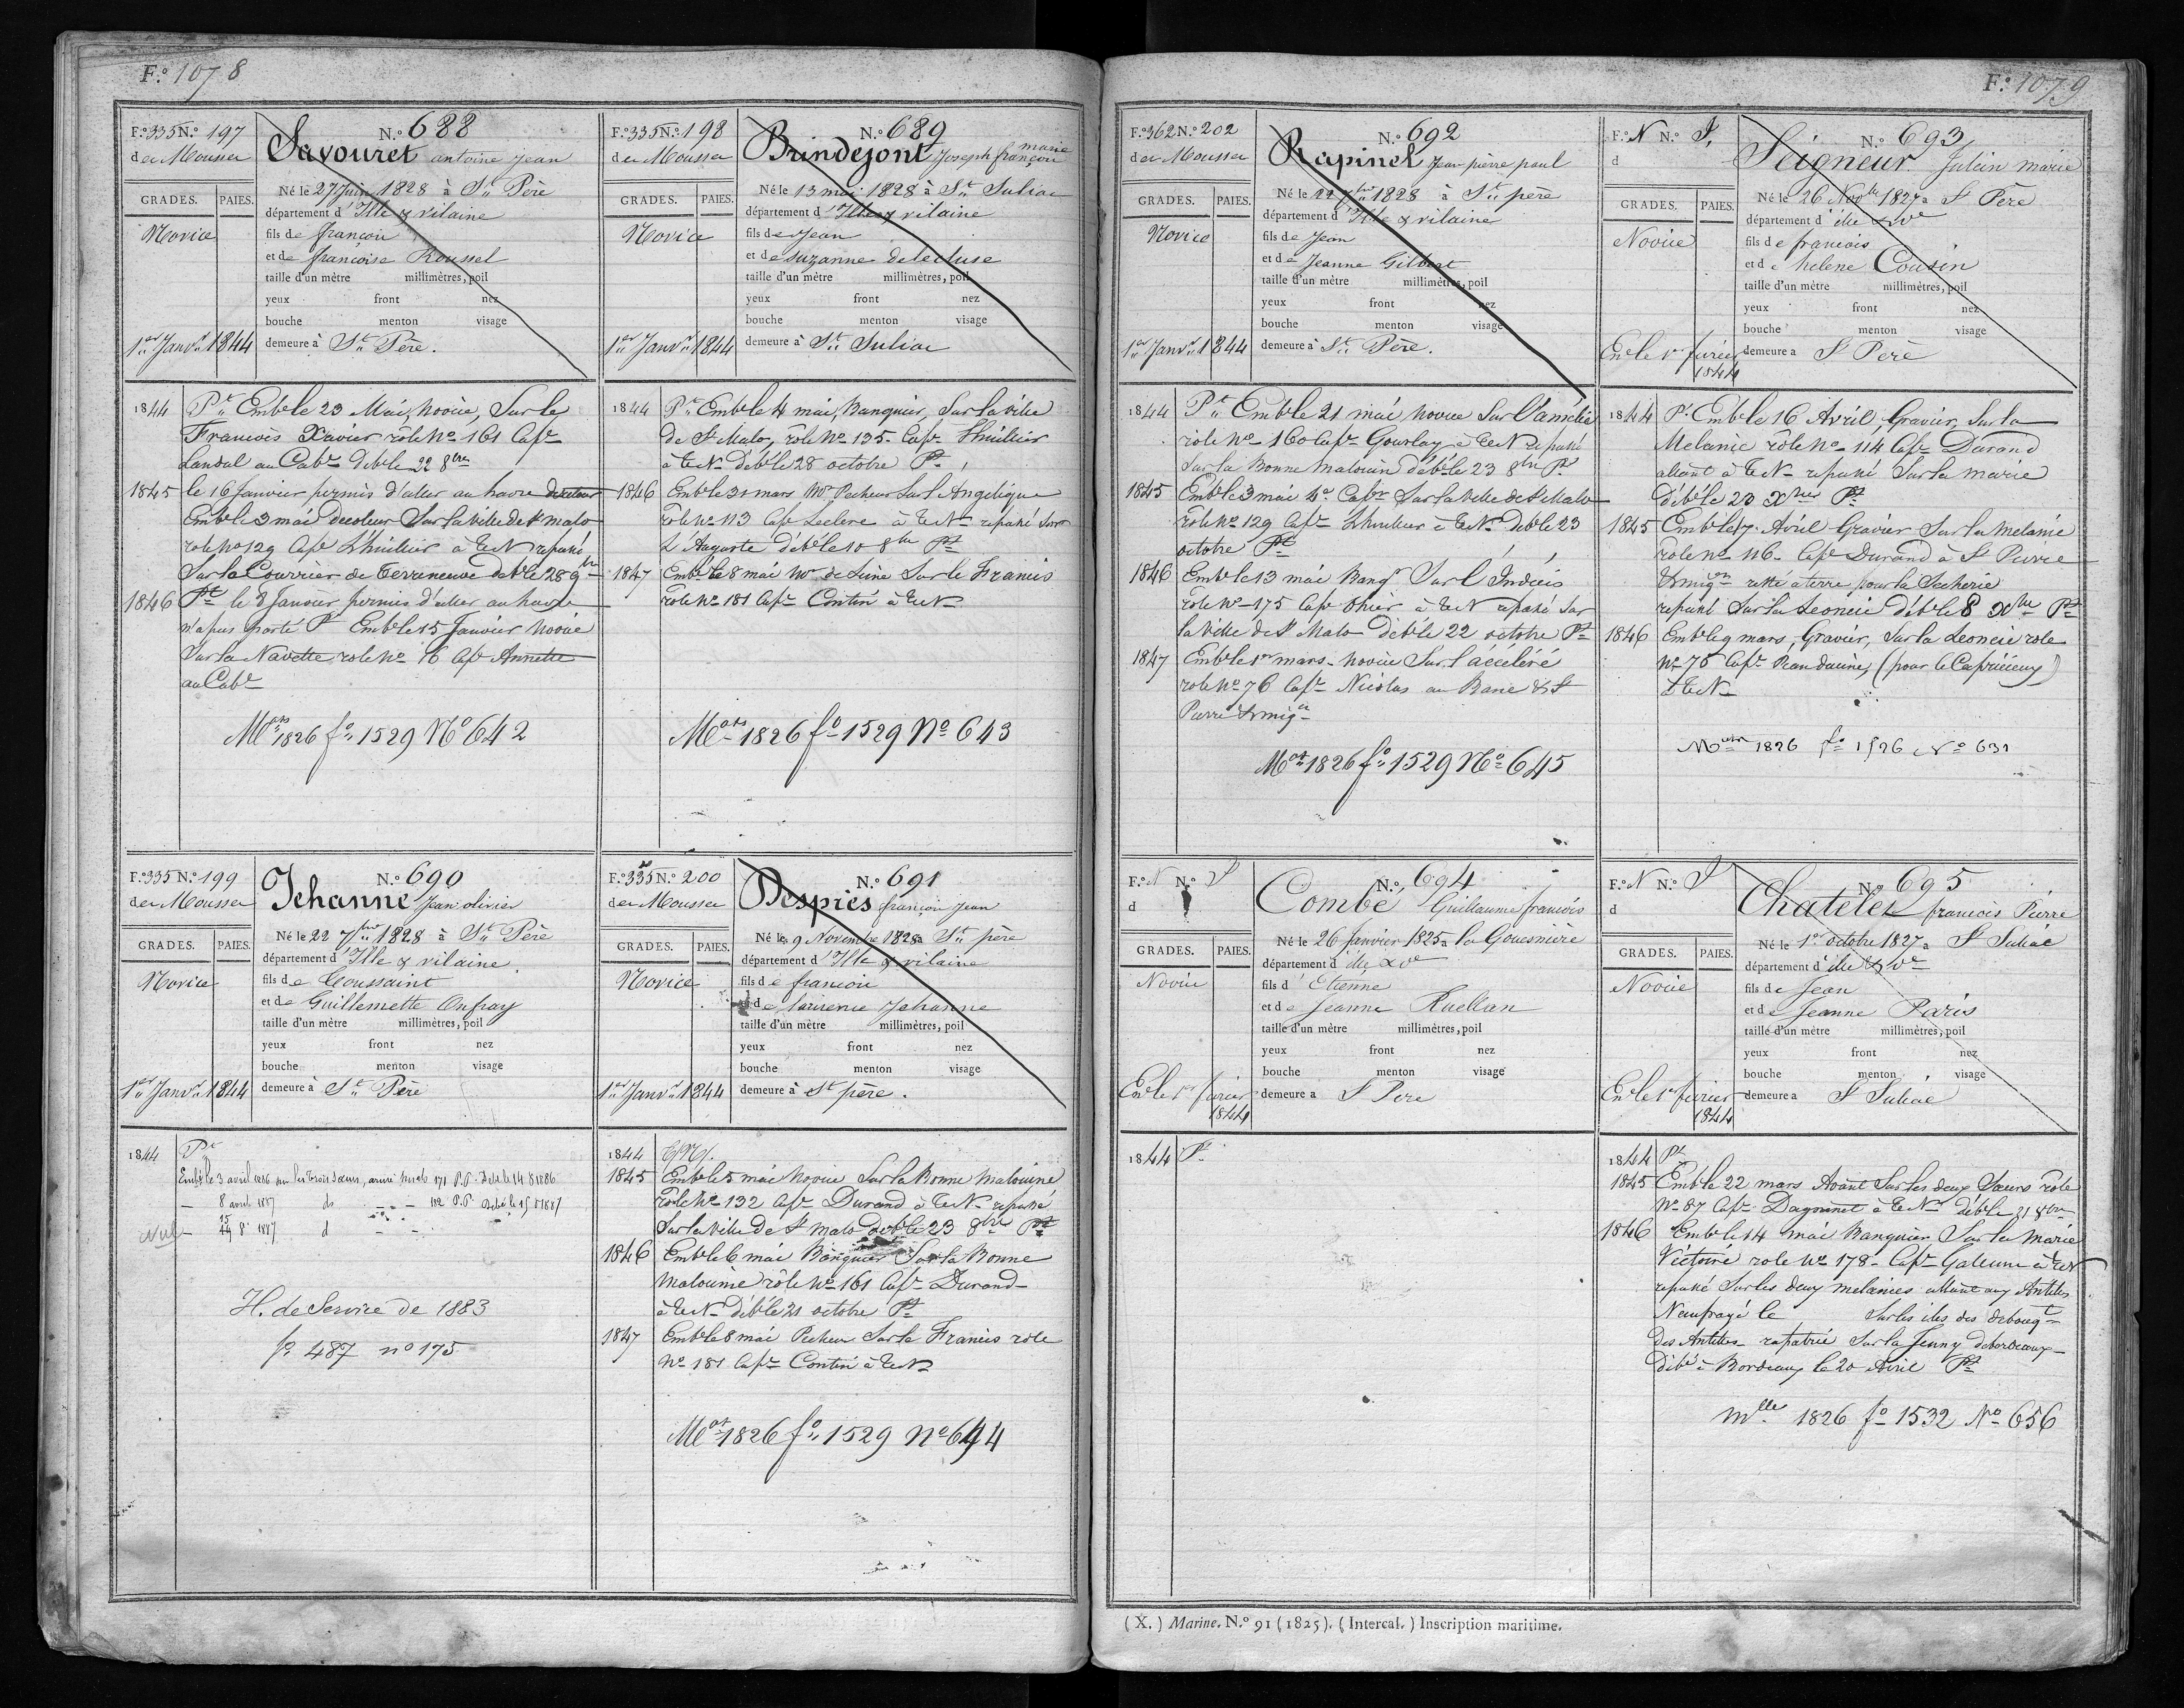 F.o 1078
F.o 335 N.o 197
des Mousses
GRADES. PAIES.
Novice
1er Janvr 1844
N.o 688
Savouret antoine Jean
Né le 27 Juin 1828 à St Père
département d'Ille & vilaine
fils de françois
et de françoise Roussel
taille d'un mètre millimètres, poil
yeux front nez
bouche menton visage
demeure à St Père.
1844 Pt Emb le 23 Mai, novice, Sur le
François Xavier rôle No 161 Cape
Landal au Cab. deb le 22 8bre
1845 le 16 Janvier permis d'aller au havre
Emb le 3 mai decoleur Sur la ville de St malo
role No 129 Cape Lhuillier à TerN repassé
Sur le Courrier de Terreneuve deb le 28 9bre
1846 Pt le 8 Janvier permis d'aller au havre
n'a pas porté Pt Emb le 15 Janvier novice
Sur la Navette role No 16 Cape Annette
au Cab
Mots 1826 fo 1529 No 642
F.o 335 N.o 198
des Mousses
GRADES. PAIES.
Novice
1er Janvr 1844
N.o 689
Brindejont Joseph françois marie
Né le 13 mai 1828 à St Suliac
département d'Ille & vilaine
fils de Jean
et de suzanne delecluse
taille d'un mètre millimètres, poil
yeux front nez
bouche menton visage
demeure à St Suliac
1844 Pt Emb le 4 mai, Banquier, Sur la ville
de St Malo, rôle No 125. Cape Lhuillier
à TerN deb le 28 octobre Pt
1846 Emb le 31 mars Pecheur Sur l'Angelique
role No 113 Cape Leclerc à TerN repassé Sur
L'Auguste deb le 10 8bre Pt
1847 Emb le 8 mai de Seine Sur le Francis
role No 181 Cape Contin à TerN
Mots 1826 fo 1529 No 643
F.o 335 N.o 199
des Mousses
GRADES. PAIES.
Novice
1er Janvr 1844
N.o 690
Jehanne Jean olivier
Né le 22 7bre 1828 à St Père
département d'Ille & vilaine
fils de Toussaint
et de Guillemette Onfray
taille d'un mètre millimètres, poil
yeux front nez
bouche menton visage
demeure à St Père
1844 Pt
Emb le 3 avril 1886 sur les trois Soeurs, armé 171 P.P. Deb le 14 8 1886
8 avril 1887 do P.P Deb le 15 8 1887
Nul 8e 1887 d
H. de Service de 1883
fo 487 no 175
F.o 335 N.o 200
des Mousses
GRADES. PAIES.
Novice
1er Janvr 1844
N.o 691
Despiés françois Jean
Né le 9 Novembre 1828 à St père
département d'Ille & vilaine
fils de françois
et de laurence Jehanne
taille d'un mètre millimètres, poil
yeux front nez
bouche menton visage
demeure à St père.
1844
1845 Emb le 5 mai novice Sur la Bonne malouine
role No 132 Cape Durand à TerN repassé
Sur la ville de St malo deb le 23 8bre Pt
1846 Emb le 6 mai Banquier Sur la Bonne
malouine rôle No 161 Cape Durand
à TerN deb le 21 octobre Pt
1847 Emb le 8 mai Pecheur Sur le Francis role
No 181 Cape Contin à TerN
Mots 1826 fo 1529 No 644
F.o 1079
F.o 362 N.o 202
des Mousses
GRADES. PAIES.
Novice
1er Janvr 1844
N.o 692
Rapinel Jean pierre paul
Né le 22 7bre 1828 à St père
département d'Ille & vilaine
fils de Jean
et de Jeanne Gilbert
taille d'un mètre millimètres, poil
yeux front nez
bouche menton visage
demeure à St Père.
1844 Pt Emb le 21 mai novice Sur l'amélie
role No 160 Cape Gourlay à TerN repassé
Sur la Bonne malouine deb le 23 8bre Pt
1845 Emb le 3 mai Sur la ville de St Malo
role No 129 Cape Lhuillier à TerN deb le 23
octobre Pt
1846 Emb le 13 mai Banqr Sur l'Indécis
role No 175 Cape Ohier à TerN repassé Sur
la ville de St Malo deb le 22 octobre Pt
1847 Emb le 1er mars novice Sur l'accéléré
role No 76 Cape Nicolas au Banc & St
Pierre & miqon
Mots 1826 fo 1529 No 645
F.o N N.o I.
d
GRADES. PAIES.
Novice
En le 1er fevrier
1844
N.o 693
Seigneur Julien marie
Né le 26 Novbre 1827 à St Père
département d'ille & Ve
fils de françois
et de helene Cousin
taille d'un mètre millimètres, poil
yeux front nez
bouche menton visage
demeure à St Père
1844 Pt Emb le 16 Avril, Gravier, Sur la
Melanie rôle No 114 Cape Durand
allant à TerN repassé Sur la marie
deb le 20 Xbre Pt
1845 Emb le 17 Avril Gravier Sur la Melanie
role No 116. Cape Durand à St Pierre
& miqon resté à terre pour la Secherie
repassé Sur la Leoncie deb le 8 Xbre Pt
1846 Emb le 9 mars, Gravier, Sur la Leoncie role
No 75 Cape (pour le Capricieux)
à TerN
Mots 1826 fo 1526 No 631
F.o N N.o I
d
GRADES. PAIES.
Novice
En le 1er fevrier
1844
N.o 694
Combé Guillaume françois
Né le 26 Janvier 1825 à la Gouesnière
département d'ille & Ve
fils d'Etienne
et de Jeanne Ruellan
taille d'un mètre millimètres, poil
yeux front nez
bouche menton visage
demeure à St Pere
1844 Pt
F.o N N.o I
d
GRADES. PAIES.
Novice
En le 1er fevrier
1844
N.o 695
Chatelet françois Pierre
Né le 1er octobre 1827 à St Suliac
département d'ille & Ve
fils de Jean
et de Jeanne Paris
taille d'un mètre millimètres, poil
yeux front nez
bouche menton visage
demeure à St Suliac
1844 Pt
1845 Emb le 22 mars Avant Sur les deux Soeurs role
No 87 Cape Dagorinet à TerN deb le 21 8bre
1846 Emb le 14 mai Banquier Sur la Marie
Victoire role No 178 Cape Galeune à TerN
repassé Sur les deux melanies allant aux Antilles
Naufragé le Sur les iles des debouqt
des Antilles rapatrié Sur la Jenny de bordeaux
débé à Bordeaux le 20 Avril Pt
mlle 1826 fo 1532 No 656
(X.) Marine. N.o 91 (1825). (Intercal.) Inscription maritime.